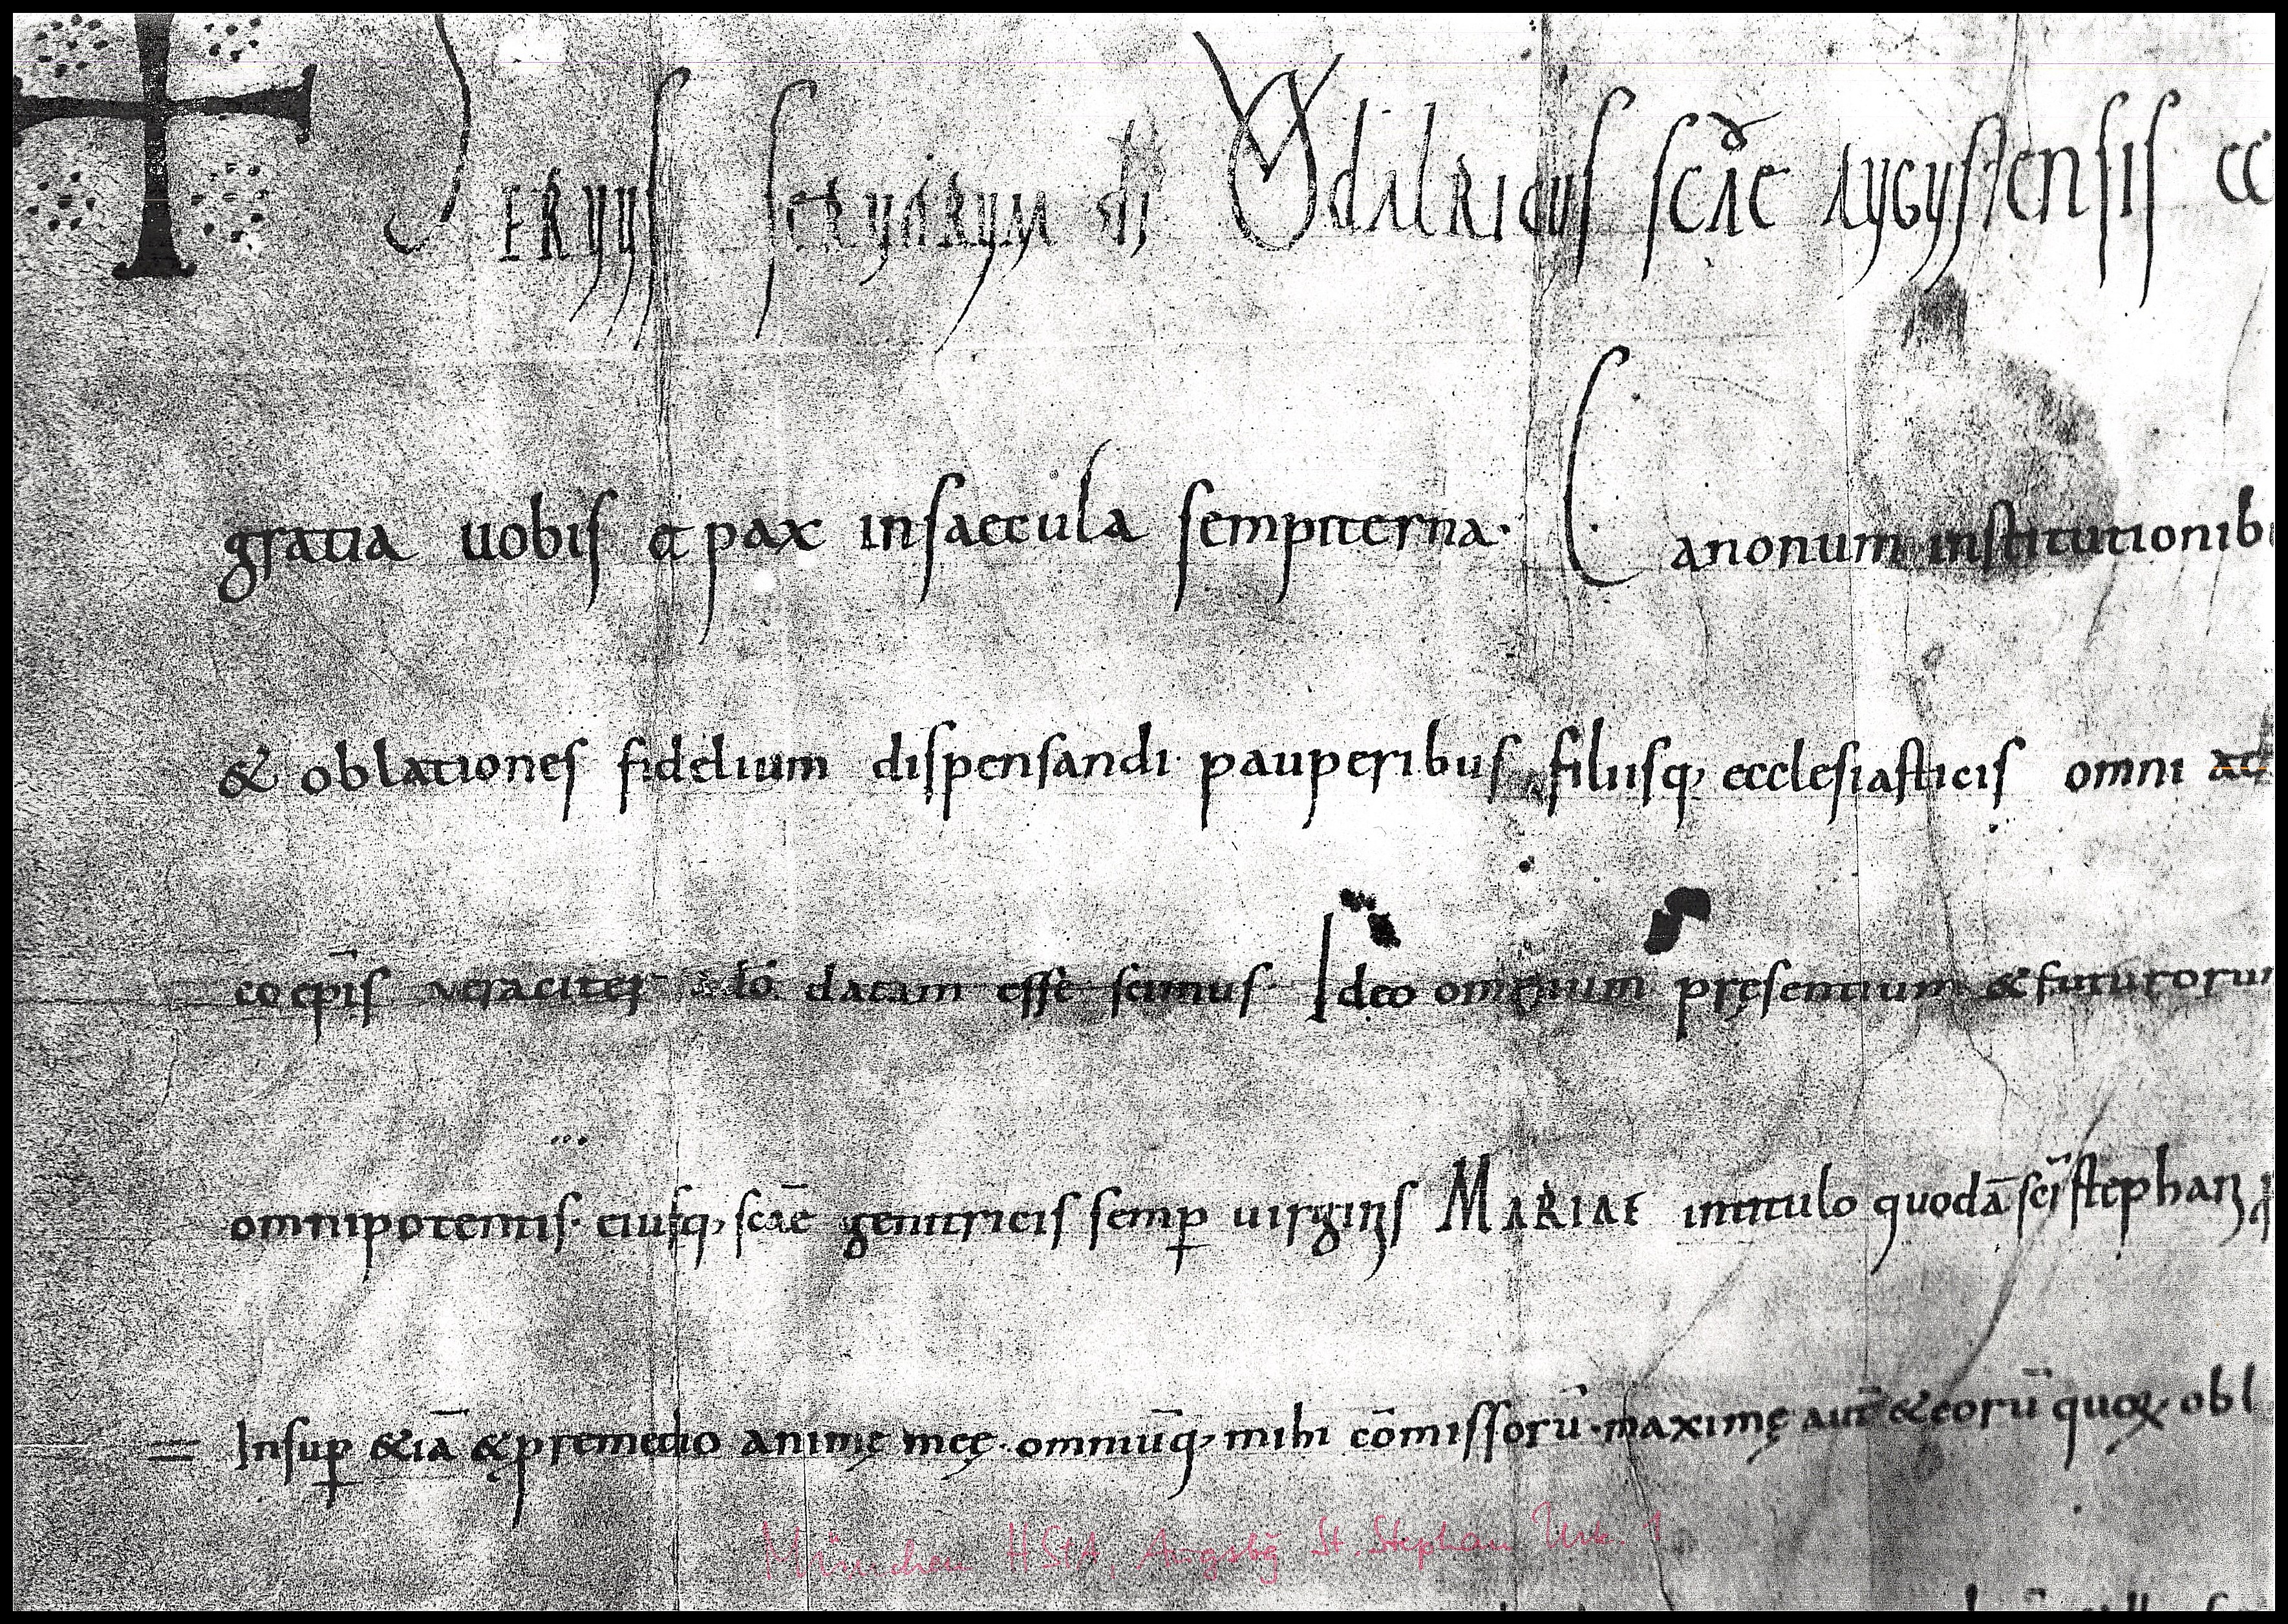 SERVUS servorum dī Vdalricus scāe Augustensis ec
gratia uobis et pax in saecula sempiterna. Canonum institutionib
& oblationes fidelium dispensandi pauperibus filiisq; ecclesiasticis omni
coep̄is ueraciter datam esse scimus. Ideo omnium pręsentium & futurorum
omnipotentis. eiusq; scāe genitricis semp̲ uirginis MARIAE intitulo quodā scī stephani
Insup̲ &iā & p̲ remedio animę meę. omniūq; mihi cōmissorū. maximę aut̄ & eorū quoꝝ obl
München HStA, Augsbg St. Stephan Urk. 1